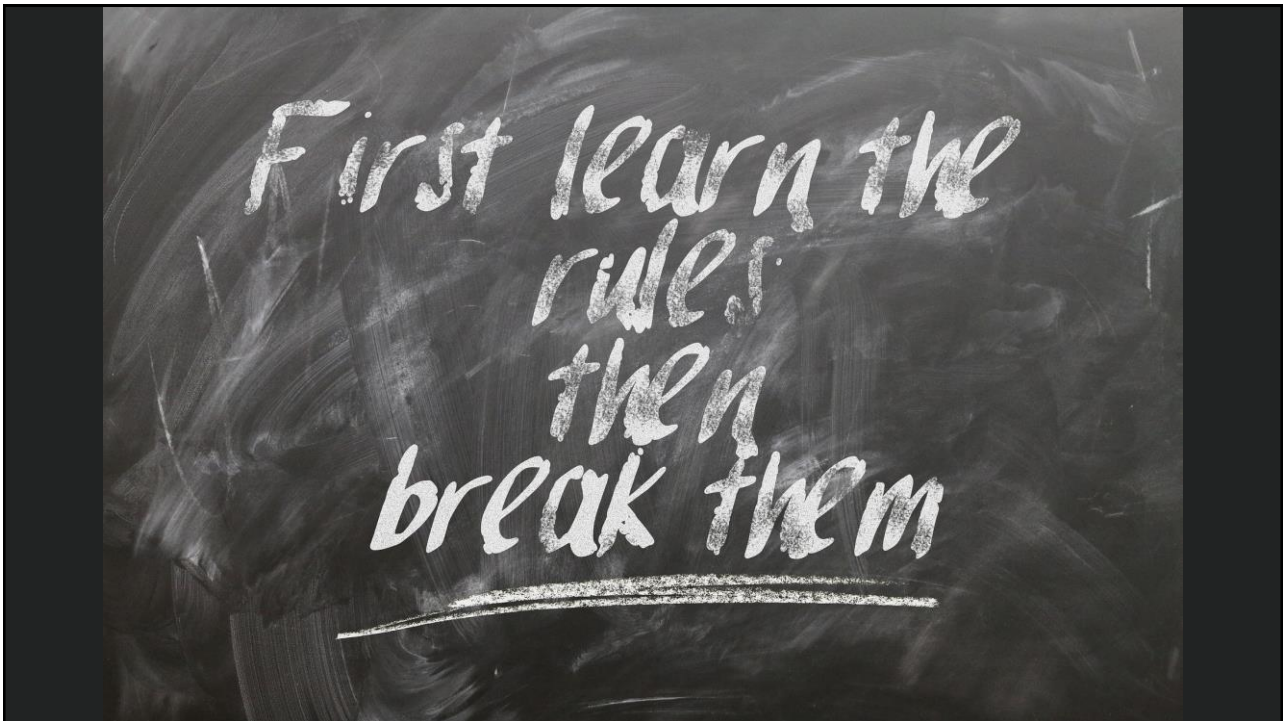 First learn the
rules
then
break them